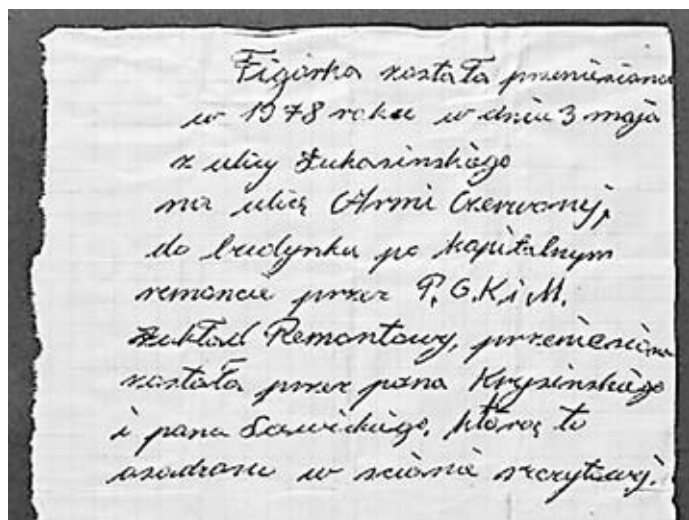 Figórka została przeniesiona
w 1978 roku w dniu 3 maja
z ulicy Łukasinskiego
na ulicę Armi Czerwonej,
do budynku po kapitalnym
remoncie przez P.G.K i M.
Zakład Remontowy, przeniesiona
została przez pana Krysinskiego
i pana Sawickiego, którą to
osadzono w scianie szczytowej.